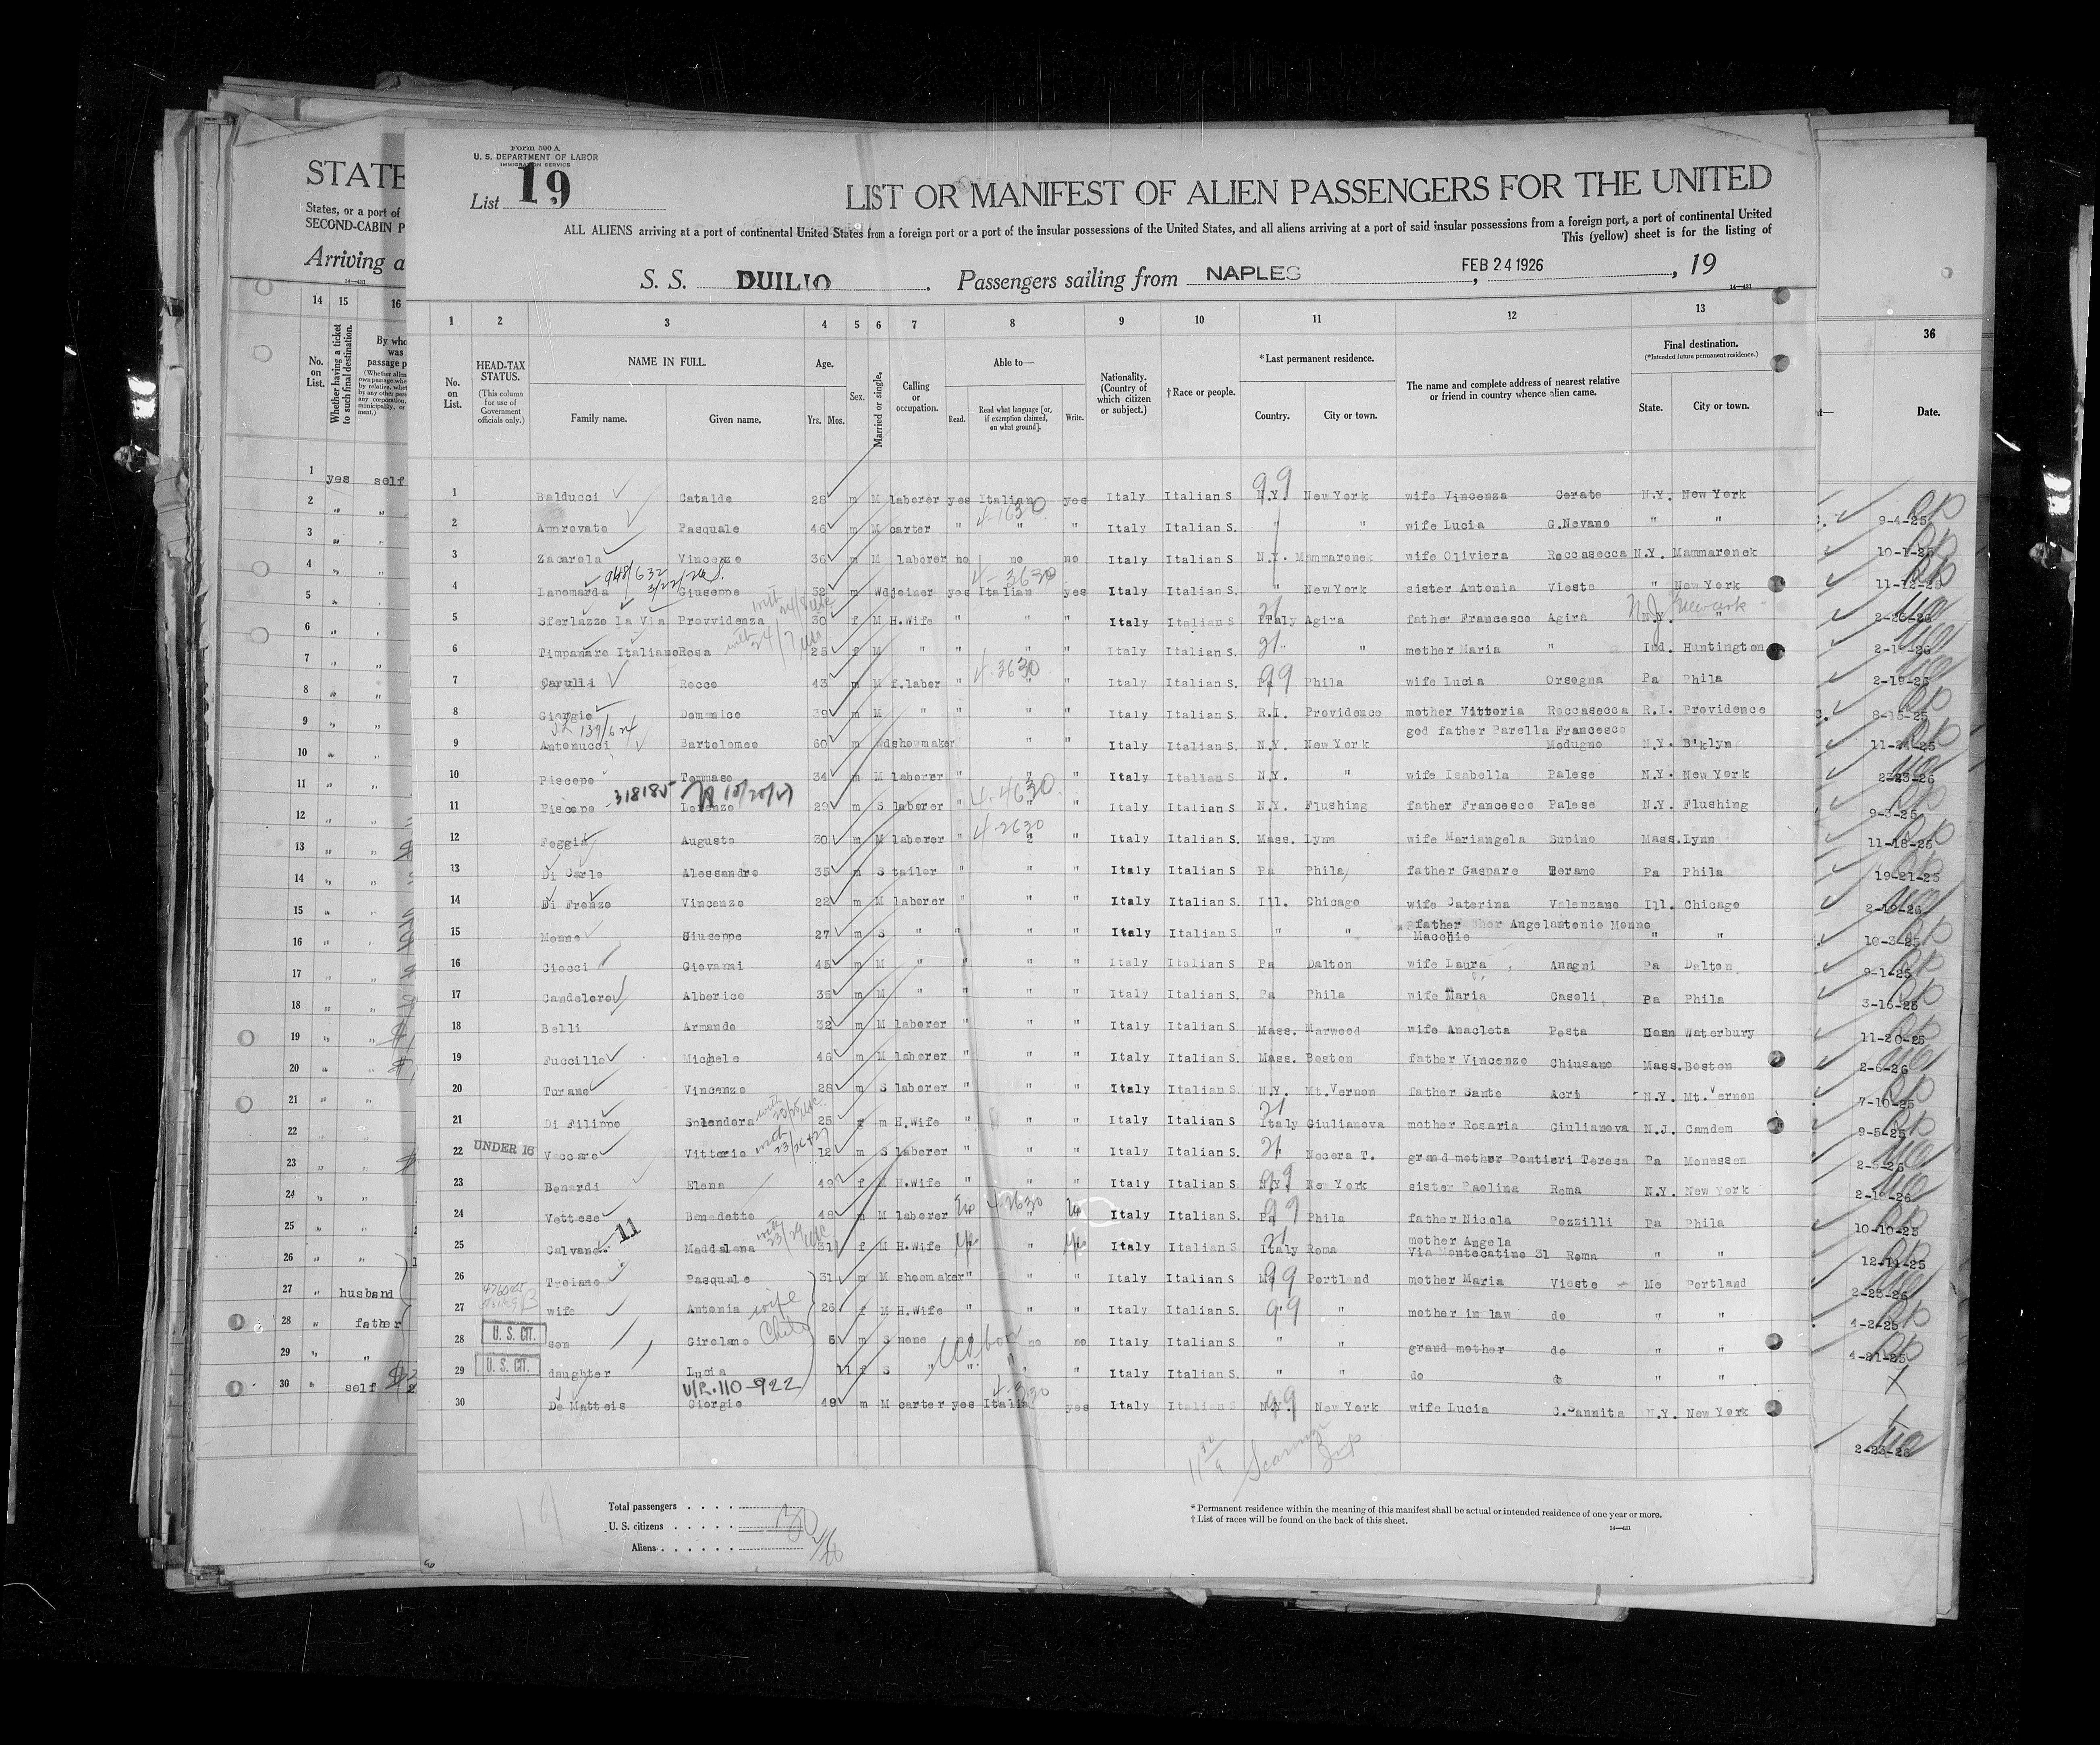 Form 500 A
U. S. DEPARTMENT OF LABOR
IMMIGRATION SERVICE
List 19
LIST OR MANIFEST OF ALIEN PASSENGERS FOR THE UNITED
ALL ALIENS arriving at a port of continental United States from a foreign port or a port of the insular possessions of the United States, and all aliens arriving at a port of said insular possessions from a foreign port, a port of continental United
This (yellow) sheet is for the listing of
S. S. DUILIO. Passengers sailing from NAPLES, FEB 24 1926, 19
14—431
1 2 3 4 5 6 7 8 9 10 11 12 13
No. on List. HEAD-TAX STATUS. (This column for use of Government officials only.) NAME IN FULL. Family name. Given name. Age. Yrs. Mos. Sex. Married or single. Calling or occupation. Able to— Read. Read what language [or, if exemption claimed, on what ground]. Write. Nationality. (Country of which citizen or subject.) †Race or people. *Last permanent residence. Country. City or town. The name and complete address of nearest relative or friend in country whence alien came. Final destination. (*Intended future permanent residence.) State. City or town.
1 Balducci Cataldo 28 m M laborer yes Italian yes Italy Italian S N.Y. New York wife Vincenza Cerato N.Y. New York
2 Approvato Pasquale 46 m M carter " " " Italy Italian S. " " wife Lucia G.Nevano " "
3 Zacarola Vincenzo 36 m M laborer no no no Italy Italian S. N.Y. Mammaronek wife Oliviera Roccasecca N.Y. Mammaronek
4 Lapomarda Giuseppe 52 m Wd joiner yes Italian yes Italy Italian S " New York sister Antonia Vieste " New York
5 Sferlazzo La Via Provvidenza 30 f M H.Wife " " " Italy Italian S Italy Agira father Francesco Agira N.Y. " N.J Newark
6 Timpanaro Italiano Rosa 25 f M " " " " Italy Italian S. " " mother Maria " Ind. Huntington
7 Carulli Rocco 43 m M f.labor " " " Italy Italian S. Pa Phila wife Lucia Orsogna Pa Phila
8 Giorgio Domenico 39 m M " " " " Italy Italian S. R.I. Providence mother Vittoria Roccasecca R.I. Providence
9 Antonucci Bartolomeo 60 m Wd showmaker " " Italy Italian S. N.Y. New York god father Parella Francesco Modugno N.Y. B'klyn
10 Piscopo Tommaso 34 m M laborer " " " Italy Italian S N.Y. " wife Isabella Palese N.Y. New York
11 Piscopo Lorenzo 29 m S laborer " " " Italy Italian S N.Y. Flushing father Francesco Palese N.Y. Flushing
12 Foggia Augusto 30 m M laborer " " " Italy Italian S Mass. Lynn wife Mariangela Supino Mass. Lynn
13 Di Carlo Alessandro 35 m S tailor " " Italy Italian S Pa Phila father Gaspare Teramo Pa Phila
14 Di Fronzo Vincenzo 22 m M laborer " " " Italy Italian S Ill. Chicago wife Caterina Valenzano Ill. Chicago
15 Monno Giuseppe 27 m S " " " " Italy Italian S " " father Angelantonio Monno Macchie " "
16 Ciocci Giovanni 45 m M " " " " Italy Italian S Pa Dalton wife Laura Anagni Pa Dalton
17 Candeloro Alberico 35 m M " " " " Italy Italian S. Pa Phila wife Maria Casoli Pa Phila
18 Belli Armando 32 m M laborer " " " Italy Italian S. Mass. Marwood wife Anacleta Posta Conn Waterbury
19 Fuccillo Michele 46 m M laborer " " " Italy Italian S. Mass. Boston father Vincenzo Chiusano Mass. Boston
20 Turano Vincenzo 28 m S laborer " " " Italy Italian S. N.Y. Mt. Vernon father Santo Acri N.Y. Mt. Vernon
21 Di Filippo Splendora 25 f m H.Wife " " " Italy Italian S Italy Giulianova mother Rosaria Giulianova N.J. Camdem
UNDER 16
22 Vaccaro Vittorio 12 m S laborer " " " Italy Italian S " Nocera T. grand mother Pontieri Teresa Pa Monessen
23 Benardi Elena 49 f M H.Wife " " Italy Italian S N.Y. New York sister Paolina Roma N.Y. New York
24 Vettese Benedetto 48 m M laborer Italy Italian S. Pa Phila father Nicola Pozzilli Pa Phila
25 Calvano 11 Maddalena 31 f M H.Wife " Italy Italian S Italy Roma mother Angela Via Montecatine 31 Roma " "
26 Troiano Pasquale 31 m M shoemaker " " " Italy Italian S Me Portland mother Maria Vieste Me Portland
27 wife Antonia 26 f M H.Wife " " " Italy Italian S " " mother in law do " "
U. S. CIT.
28 son Girolamo 5 m S none no no no Italy Italian S " " grand mother do " "
U. S. CIT.
29 daughter Lucia 11 f S " " " " Italy Italian S " " do do " "
V/P. 110-922
30 De Matteis Giorgio 49 m M carter yes Italian yes Italy Italian S N.Y. New York wife Lucia C.Pannita N.Y. New York
Total passengers 30
U. S. citizens
Aliens
* Permanent residence within the meaning of this manifest shall be actual or intended residence of one year or more.
† List of races will be found on the back of this sheet.
14—431
STATE
States, or a port of
SECOND-CABIN P
Arriving a
14 15 16
No. on List. Whether having a ticket to such final destination. By who was passage p
1 yes self
27 " husband
28 " father
30 " self
36
Date.
9-4-25
10-1-25
11-12-25
2-20-26
2-19-26
8-15-25
11-24-25
2-23-26
9-3-25
11-18-25
19-21-25
2-19-26
10-3-25
9-1-25
3-16-25
11-20-25
2-6-26
7-10-25
9-5-25
2-5-26
2-19-26
10-10-25
12-11-25
2-23-26
4-2-25
4-21-25
2-23-26